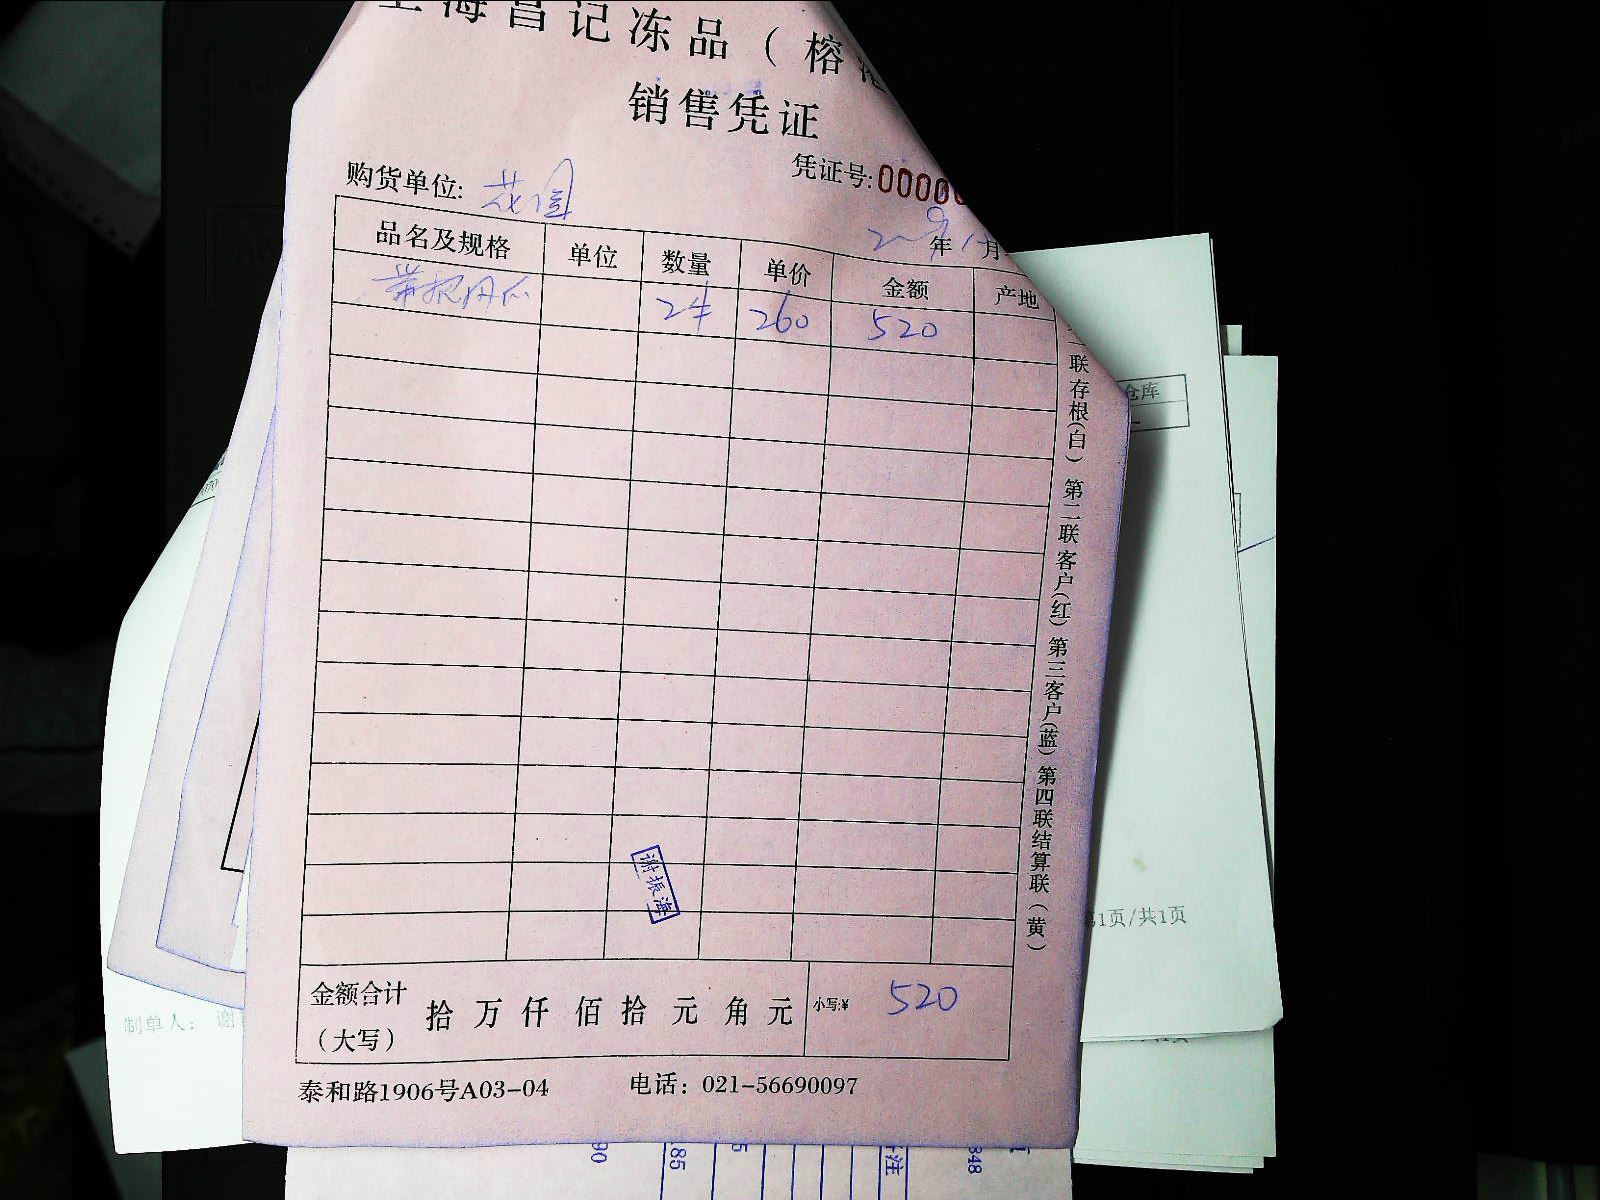 上海昌记冻品（榕
销售凭证
凭证号:0000
购货单位: 花园
年 月
品名及规格 单位 数量 单价 金额 产地
2件 260 520
联存根(白) 第二联客户(红) 第三客户(蓝) 第四联结算联(黄)
谢振海
金额合计(大写) 拾 万 仟 佰 拾 元 角 元 小写:¥ 520
泰和路1906号A03-04 电话: 021-56690097
仓库
第1页/共1页
制单人: 谢
90
.85
5
注
348